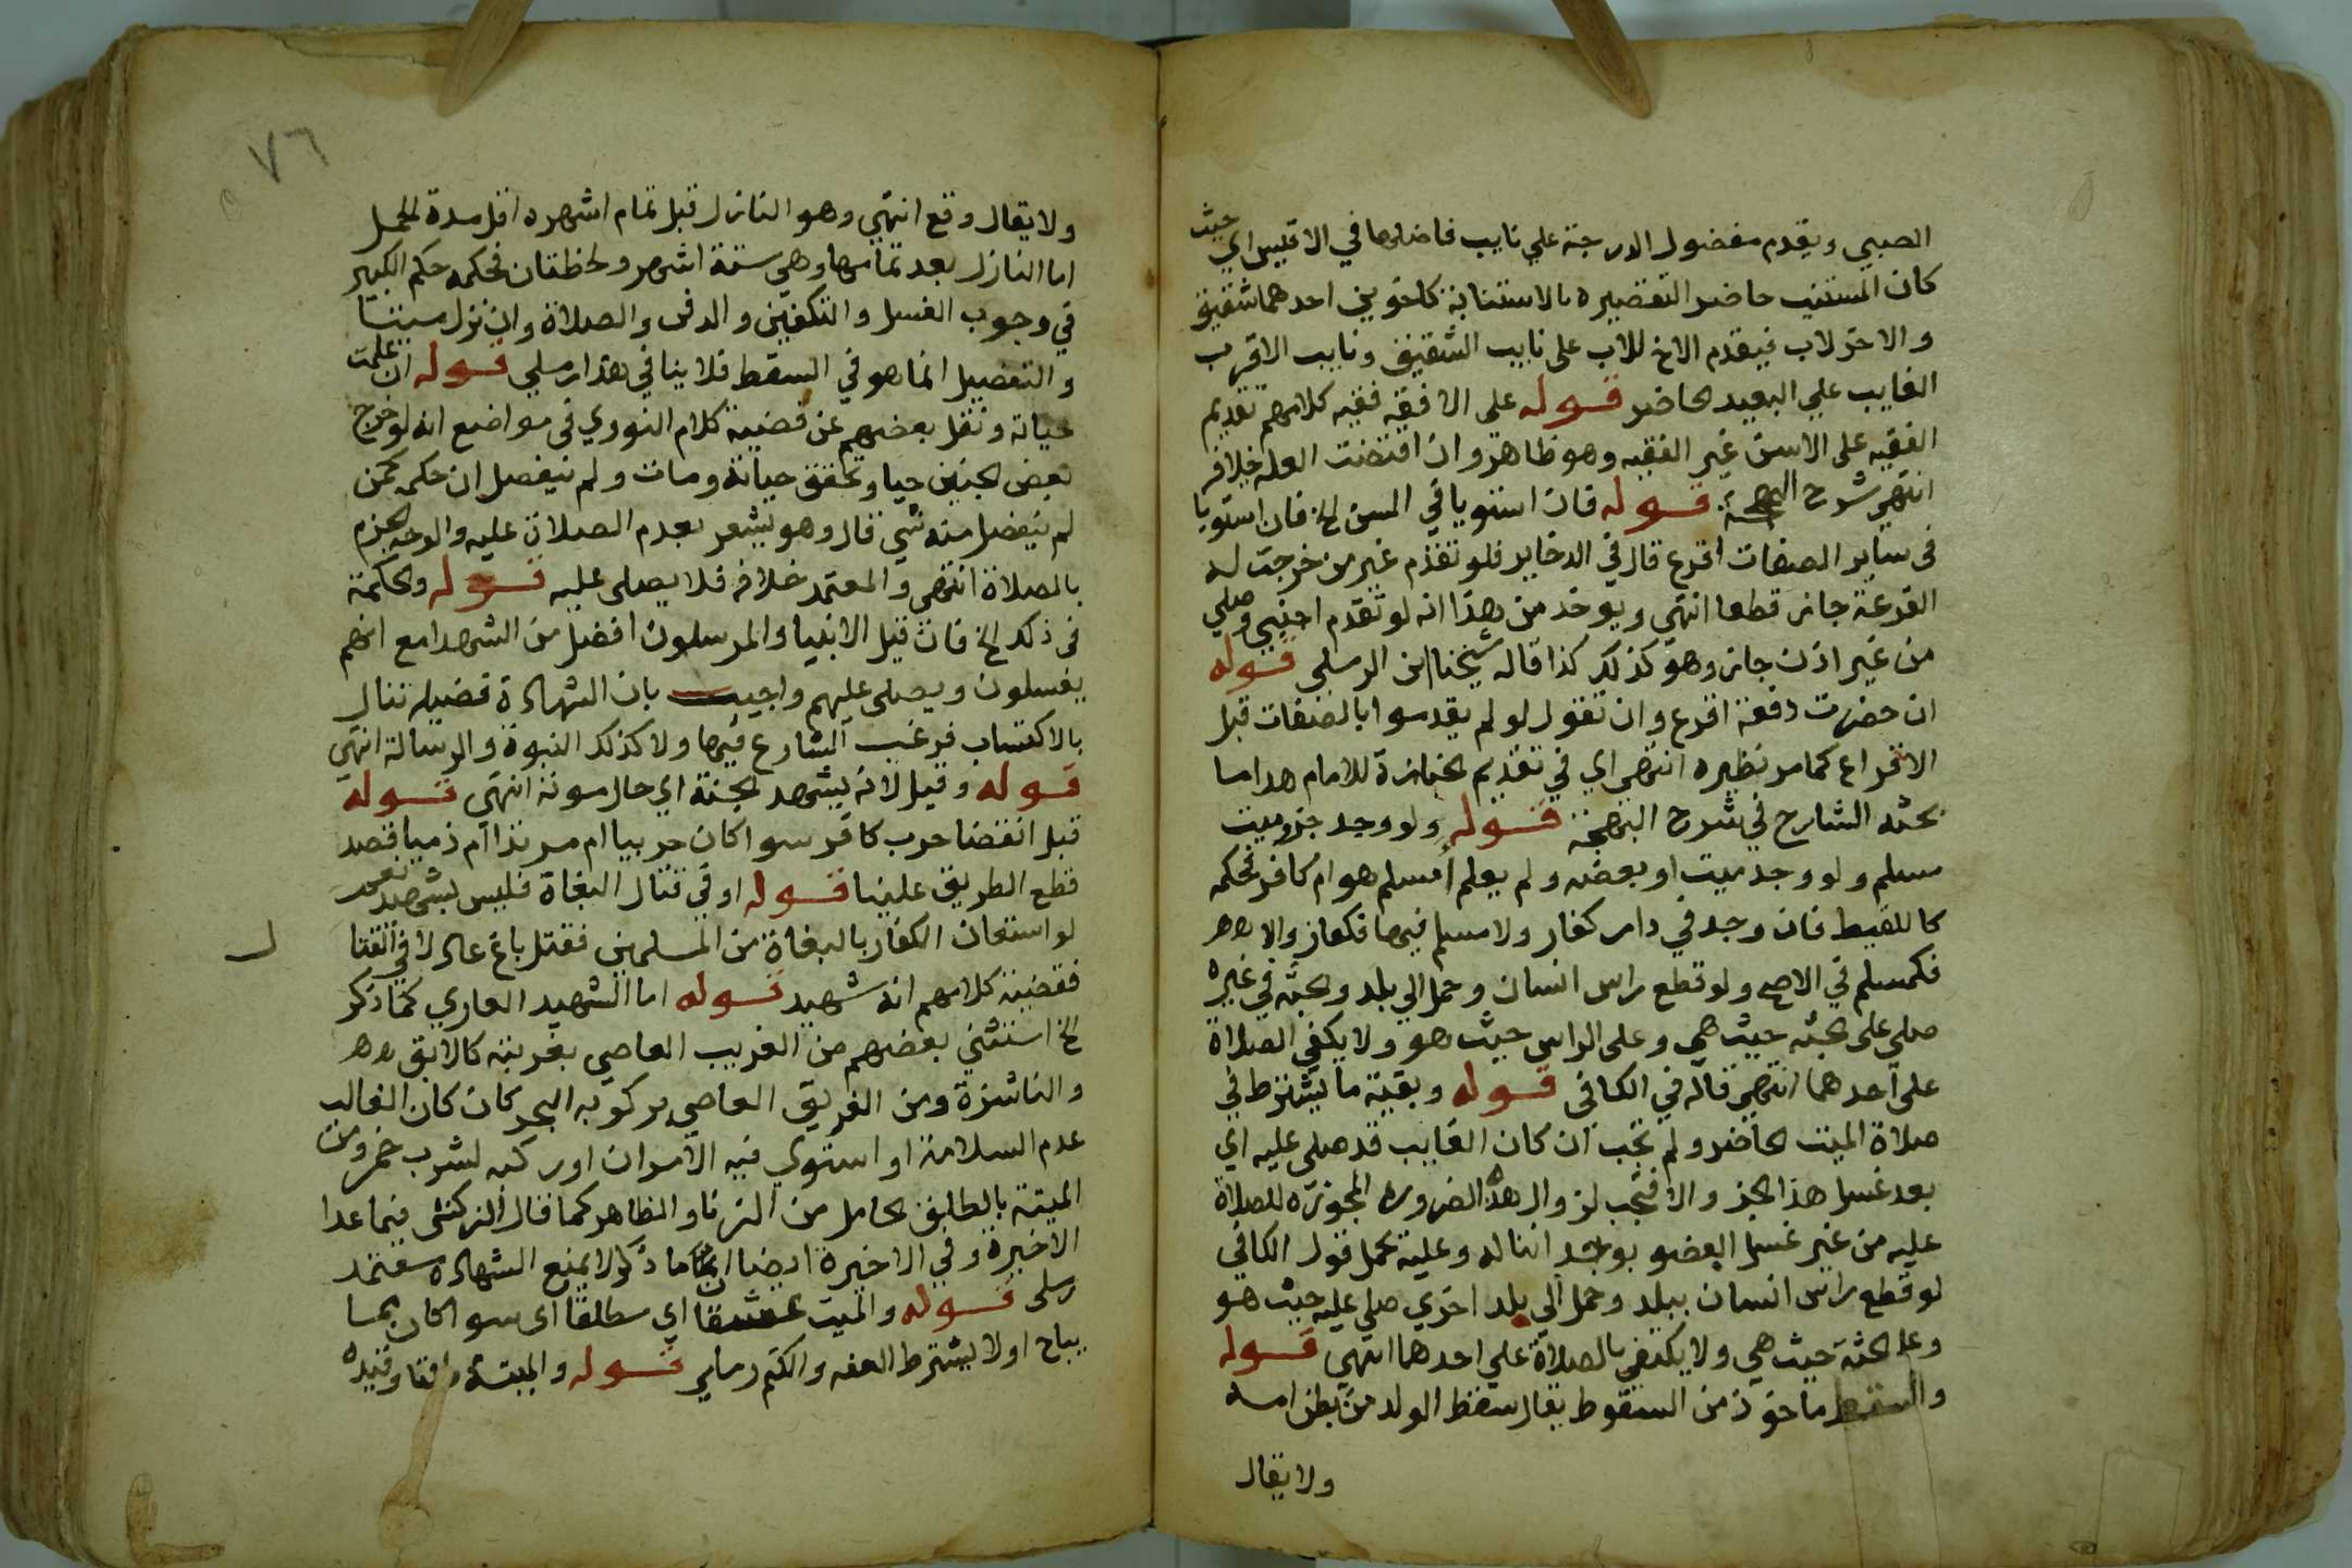 الصبي ويقدم مفضول الدرجة علي نايب فاضلها في الاقيس اي حيث
كان المستنيب حاضرا لتقصيره بالاستنابة كاخوين احدهما شقيق
والاخر لاب فيقدم الاخ للاب على نايب الشقيق ونايب الاقرب
الغايب علي البعيد الحاضر قوله على الافقه ففيه كلامهم تقديم
الفقيه على الاسن غير الفقيه وهو ظاهر وان اقتضت العلة خلافه
انتهى شرح البهجة قوله فان استويا في السن الخ فان استويا
في ساير الصفات اقرع قال في الدخاير فلو تقدم غير من خرجت له
القرعة جاز قطعا انتهي ويوخذ من هذا انه لو تقدم اجنبي وصلي
من غير اذن جاز وهو كذلك كذا قاله شيخنا ابن الرملي قوله
ان حضرت دفعة اقرع وان تقول لو لم يقدموا بالصفات قبل
الاقراع كما مر نظيره انتهى اي في تقديم الجنازة للامام هذا ما
بحثه الشارح في شرح البهجة قوله ولو وجد جزو ميت
مسلم ولو وجد ميت او بعضه ولم يعلم أمسلم هو ام كافر فحكمه
كاللقيط فان وجد في دار كفار ولا مسلم فيها فكافر والا
فكمسلم في الاصح ولو قطع راس انسان وحمل الي بلد والجثة في غيره
صلي على الجثة حيث هي وعلى الراس حيث هو ولا يكفي الصلاة
على احدهما انتهى قاله في الكافي قوله وبقية ما يشترط في
صلاة الميت الحاضر ولم تجب ان كان الغايب قد صلى عليه اي
بعد غسل هذا الجز والا فتجب لزوال هذه الضرورة المجوزة للصلاة
عليه من غير غسل العضو بوجد اننا له وعليه يحمل قول الكافي
لو قطع راس انسان ببلد وحمل الي بلد اخري صلي عليه حيث هو
وعلى الجثة حيث هي ولا يكتفي بالصلاة علي احدهما انتهي قوله
والسقط ماخوذ من السقوط يقال سقط الولد من بطن امه
ولا يقال
٧٦
ولا يقال وقع انتهي وهو النازل قبل تمام اشهره اقل مدة الحمل
اما النازل بعد تمامها وهي ستة اشهر ولحظتان فحكمه حكم الكبير
في وجوب الغسل والتكفين والدفن والصلاة وان نزل ميتا
والتفصيل انما هو في السقط فلا ينافي هذا رملي قوله ان علمت
حياته ونقل بعضهم عن قضية كلام النووي في مواضع انه لو خرج
بعض الجنين حيا وتحقق حياته ومات ولم ينفصل ان حكمه كمن
لم ينفصل منه شي قال وهو يشعر بعدم الصلاة عليه والوجه الجزم
بالصلاة انتهى والمعتمد خلافه فلا يصلى عليه قوله والحكمة
في ذلك الخ فان قيل الانبيا والمرسلون افضل من الشهدا مع انهم
يغسلون ويصلى عليهم واجيب بان الشهادة فضيله تنال
بالاكتساب فرغب الشارع فيها ولا كذلك النبوة والرسالة انتهي
قوله وقيل لانه يشهد الجنة اي حال موته انتهي قوله
قبل انقضا حرب كافر سوا كان حربيا ام مرتدا ام ذميا قصد
قطع الطريق علينا قوله او في قتال البغاة فليس بشهيد نعم
لو استعان الكفار بالبغاة من المسلمين فقتل باغ عادلا في القتا
ل
فقضية كلامهم انه شهيد قوله اما الشهيد العاري كما ذكر
الخ استثني بعضهم من الغريب العاصي بغربته كالابق
والناشزة ومن الغريق العاصي بركوبه البحر كان كان الغالب
عدم السلامة او استوي فيه الامران او ركبه لشرب خمر ومن
الميتة بالطلق الحامل من الزنا والظاهر كما قال الزركشى فيما عدا
الاخيرة وفي الاخيرة ايضا ان ما ذكر لا يمنع الشهادة معتمد
رملى قوله والميت عشقا اي مطلقا اى سوا كان بما
يباح اولا يشترط العفه والكتم رملي قوله والميتة وقيده